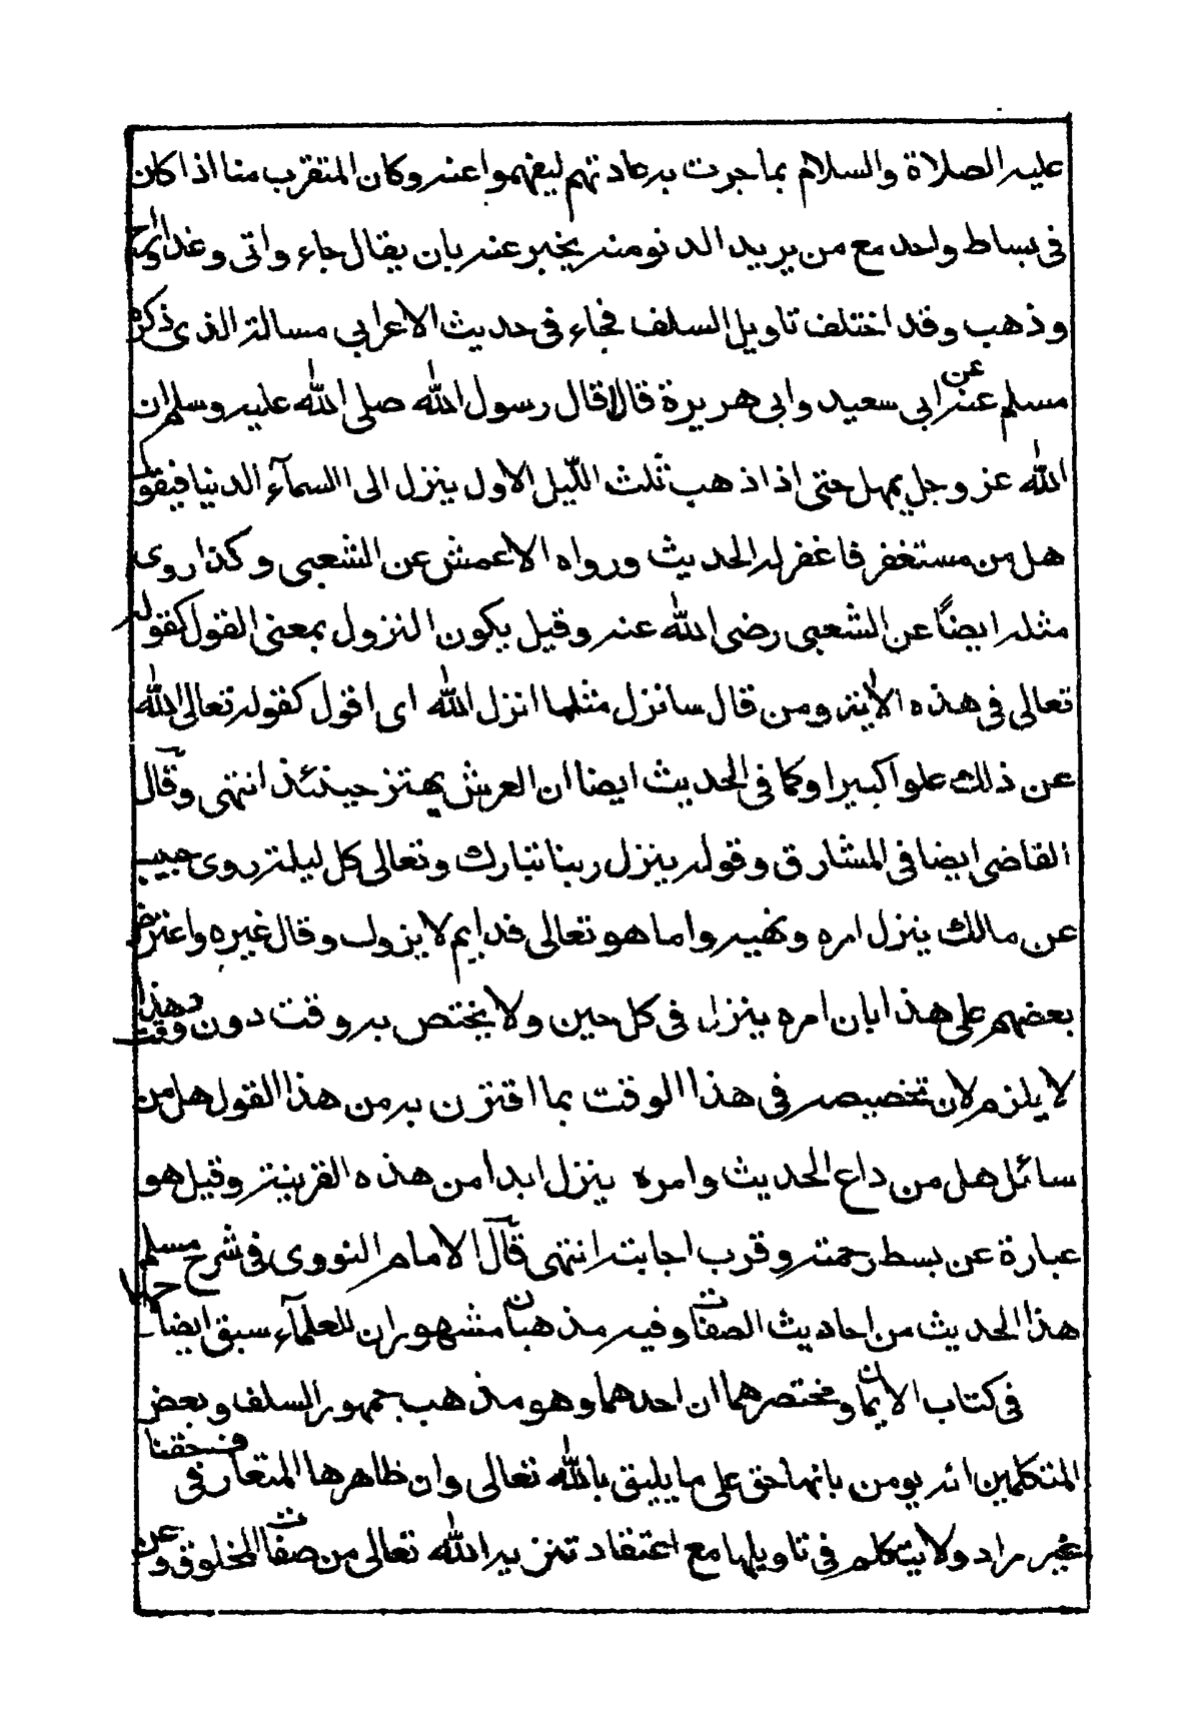 عليه الصلاة والسلام بما جرت به عادتهم ليفهموا عنه وكان المتقرب منا اذا كان
فى بساط واحد مع من يريد الدنو منه يخبر عنه بان يقال جاء واتى وغدا وراح
وذهب وقد اختلف تاويل السلف فجاء فى حديث الاعرابي مسالة الذى ذكره
مسلم عن ابى سعيد وابى هريرة قالا قال رسول الله صلى الله عليه وسلم ان
الله عز وجل يمهل حتى اذا ذهب ثلث الليل الاول ينزل الى السمآء الدنيا فيقول
هل من مستغفر فاغفر له الحديث ورواه الاعمش عن الشعبى وكذا روى
مثله ايضًا عن الشعبى رضى الله عنه وقيل يكون النزول بمعنى القول كقوله
تعالى فى هذه الاية ومن قال سانزل مثلما انزل الله اى اقول كقوله تعالى الله
عن ذلك علوا كبيرا وكما فى الحديث ايضا ان العرش يهتز حينئذ انتهى وقال
القاضى ايضا فى المشارق وقوله ينزل ربنا تبارك وتعالى كل ليلة روى حبيب
عن مالك ينزل امره ونهيه واما هو تعالى فدايم لا يزول وقال غيره واعترض
بعضهم على هذا بان امره ينزل فى كل حين ولا يختص به وقت دون وقت وهذا
لا يلزم لان تخصيصه فى هذا الوقت بما اقترن به من هذا القول هل من
سائل هل من داع الحديث وامره ينزل ابدا من هذه القرينة وقيل هو
عبارة عن بسط رحمته وقرب اجابته انتهى قال الامام النووى فى شرح مسلم
هذا الحديث من احاديث الصفات وفيه مذهبان مشهوران للعلمآء سبق ايضا
فى كتاب الايمان ومختصرهما ان احدهما وهو مذهب جمهور السلف وبعض
المتكلمين انه يومن بانها حق على ما يليق بالله تعالى وان ظاهرها المتعارف فى حقنا
غير مراد ولا يتكلم فى تاويلها مع اعتقاد تنزيه الله تعالى من صفات المخلوق وعن